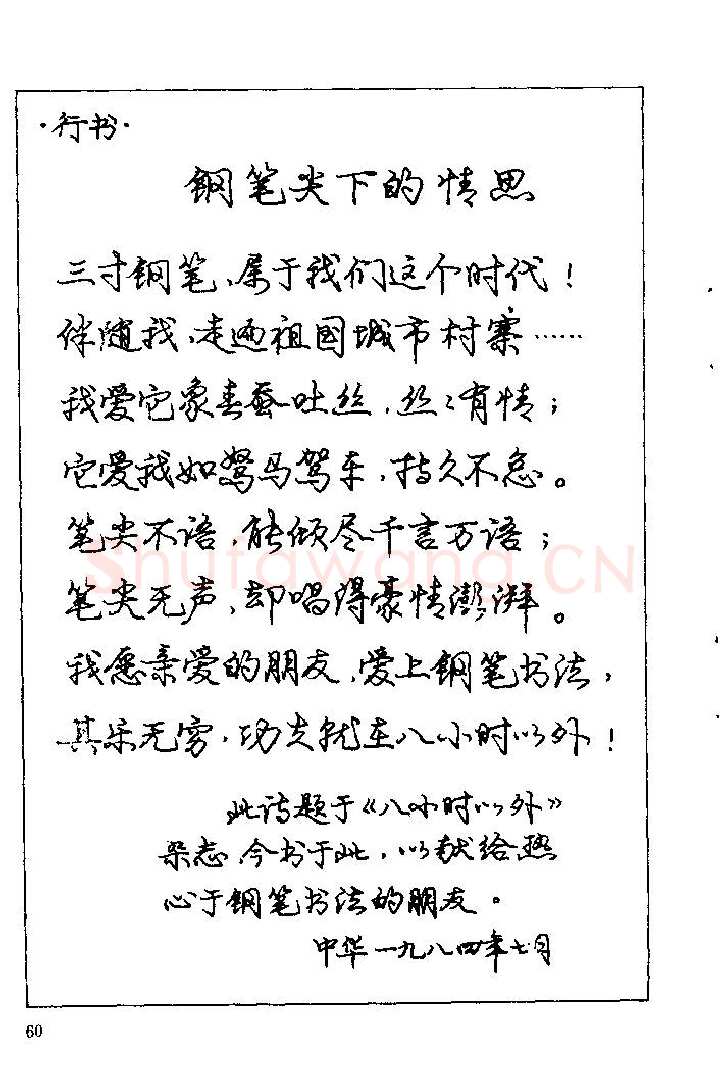 ·行书·
钢笔尖下的情思
三寸钢笔、属于我们这个时代！
伴随我、走遍祖国城市村寨……
我爱它象春蚕吐丝，丝丝有情；
它爱我如驽马驾车，持久不怠。
笔尖不语，能倾尽千言万语；
笔尖无声，却唱得豪情澎湃。
我愿亲爱的朋友，爱上钢笔书法，
其乐无穷，功夫就在八小时以外！
此诗题于《八小时以外》
杂志，今书于此，以献给热
心于钢笔书法的朋友。
中华一九八四年七月
Shufawang.CN
60